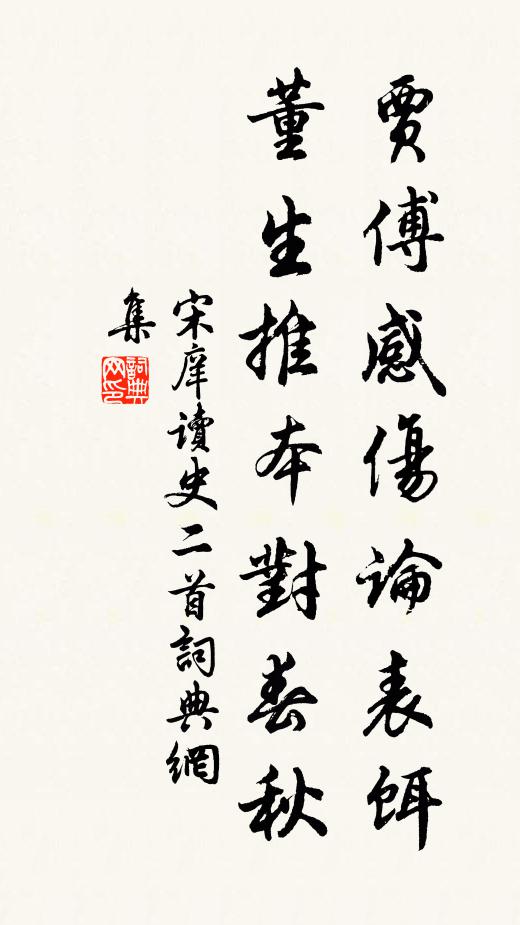 賈傅感傷論表餌
董生推本對春秋
宋庠讀史二首詞典網
集
詞典
网印